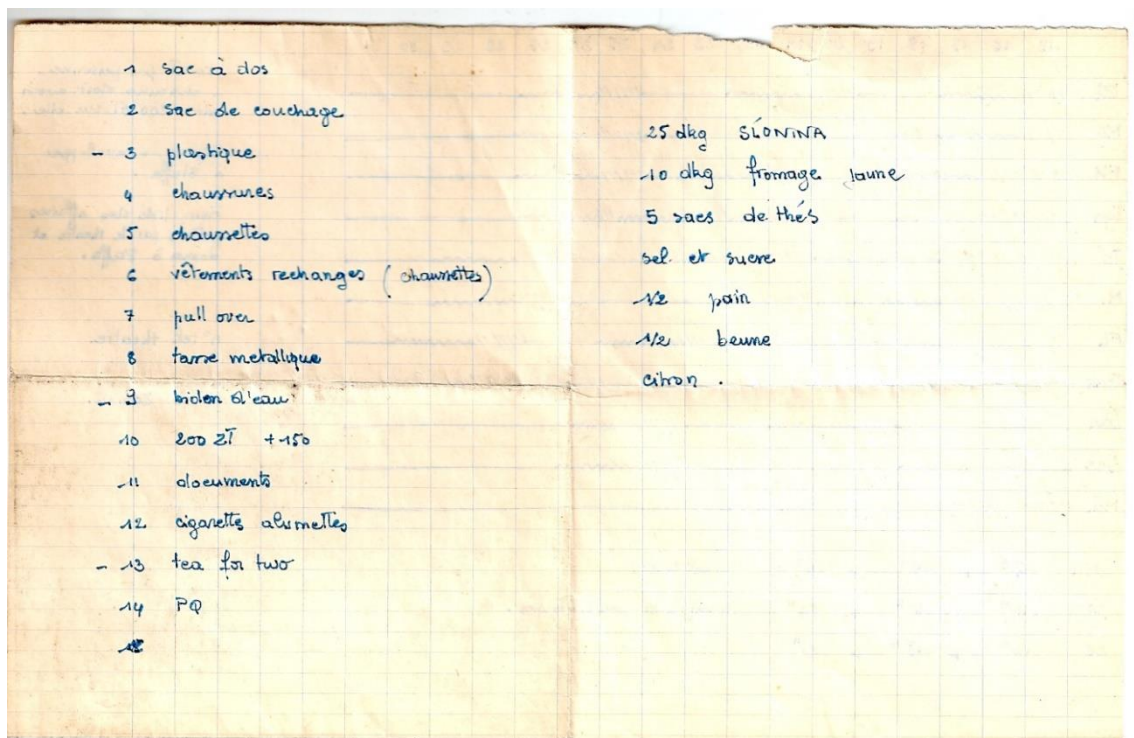 1 sac à dos
2 sac de couchage
- 3 plastique
4 chaussures
5 chaussettes
6 vêtements rechanges (chaussettes)
7 pull over
8 tasse metallique
- 9 bidon d'eau
10 200 ZŁ +150
11 documents
12 cigarettes alumettes
- 13 tea for two
14 PQ
25 dkg SŁONINA
10 dkg fromage jaune
5 sacs de thés
sel et sucre
1/2 pain
1/2 beurre
citron.